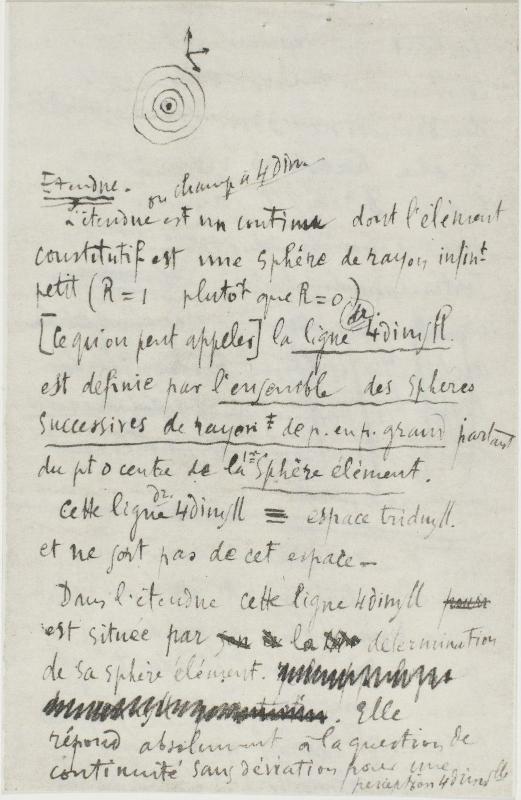 Etendue.
ou champ à 4 dim
L'étendue est un continu dont l'élément
constitutif est une sphère de rayon infint
petit (R = 1 plutôt que R = 0)
[ce qu'on peut appeler] la ligne dr. 4dimsll.
est définie par l'ensemble des spheres
successives de rayon de p. en p. grand partant
du pt o centre de la 1re sphère élément.
Cette ligne dr. 4dimsll ≡ espace tridimsll.
et ne sort pas de cet espace —
Dans l'étendue cette ligne 4dimsll
est située par la détermination
de sa sphère élément.
Elle
répond absolument à la question de
continuité sans déviation pour une
perception 4dimselle